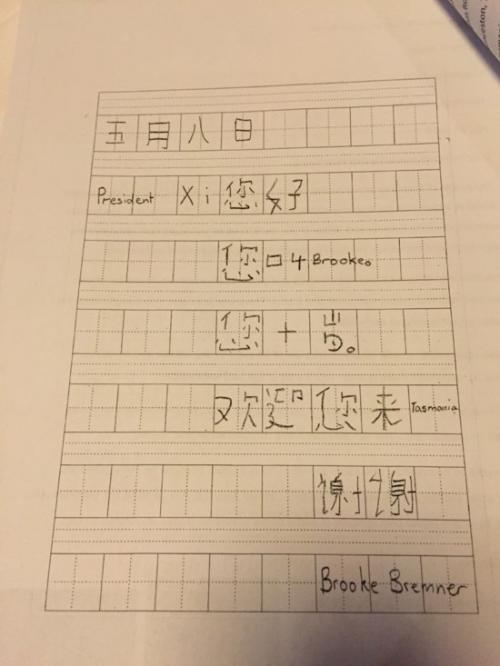 五月八日
President Xi 您好
您叫 Brooke。
您十岁。
欢迎您来 Tasmania
谢谢
Brooke Bremner